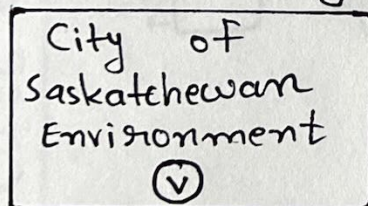 City of
Saskatchewan
Environment
V